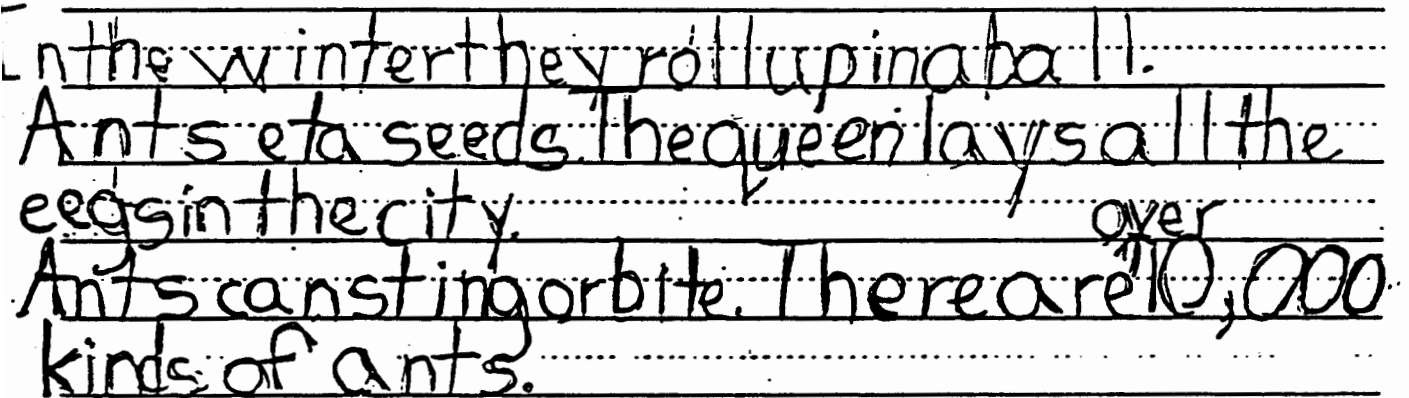 In the winter they roll up in a ball.
Ants eta seeds. The queen lays all the
eegs in the city.
Ants can sting or bite. There are over 10,000
kinds of ants.